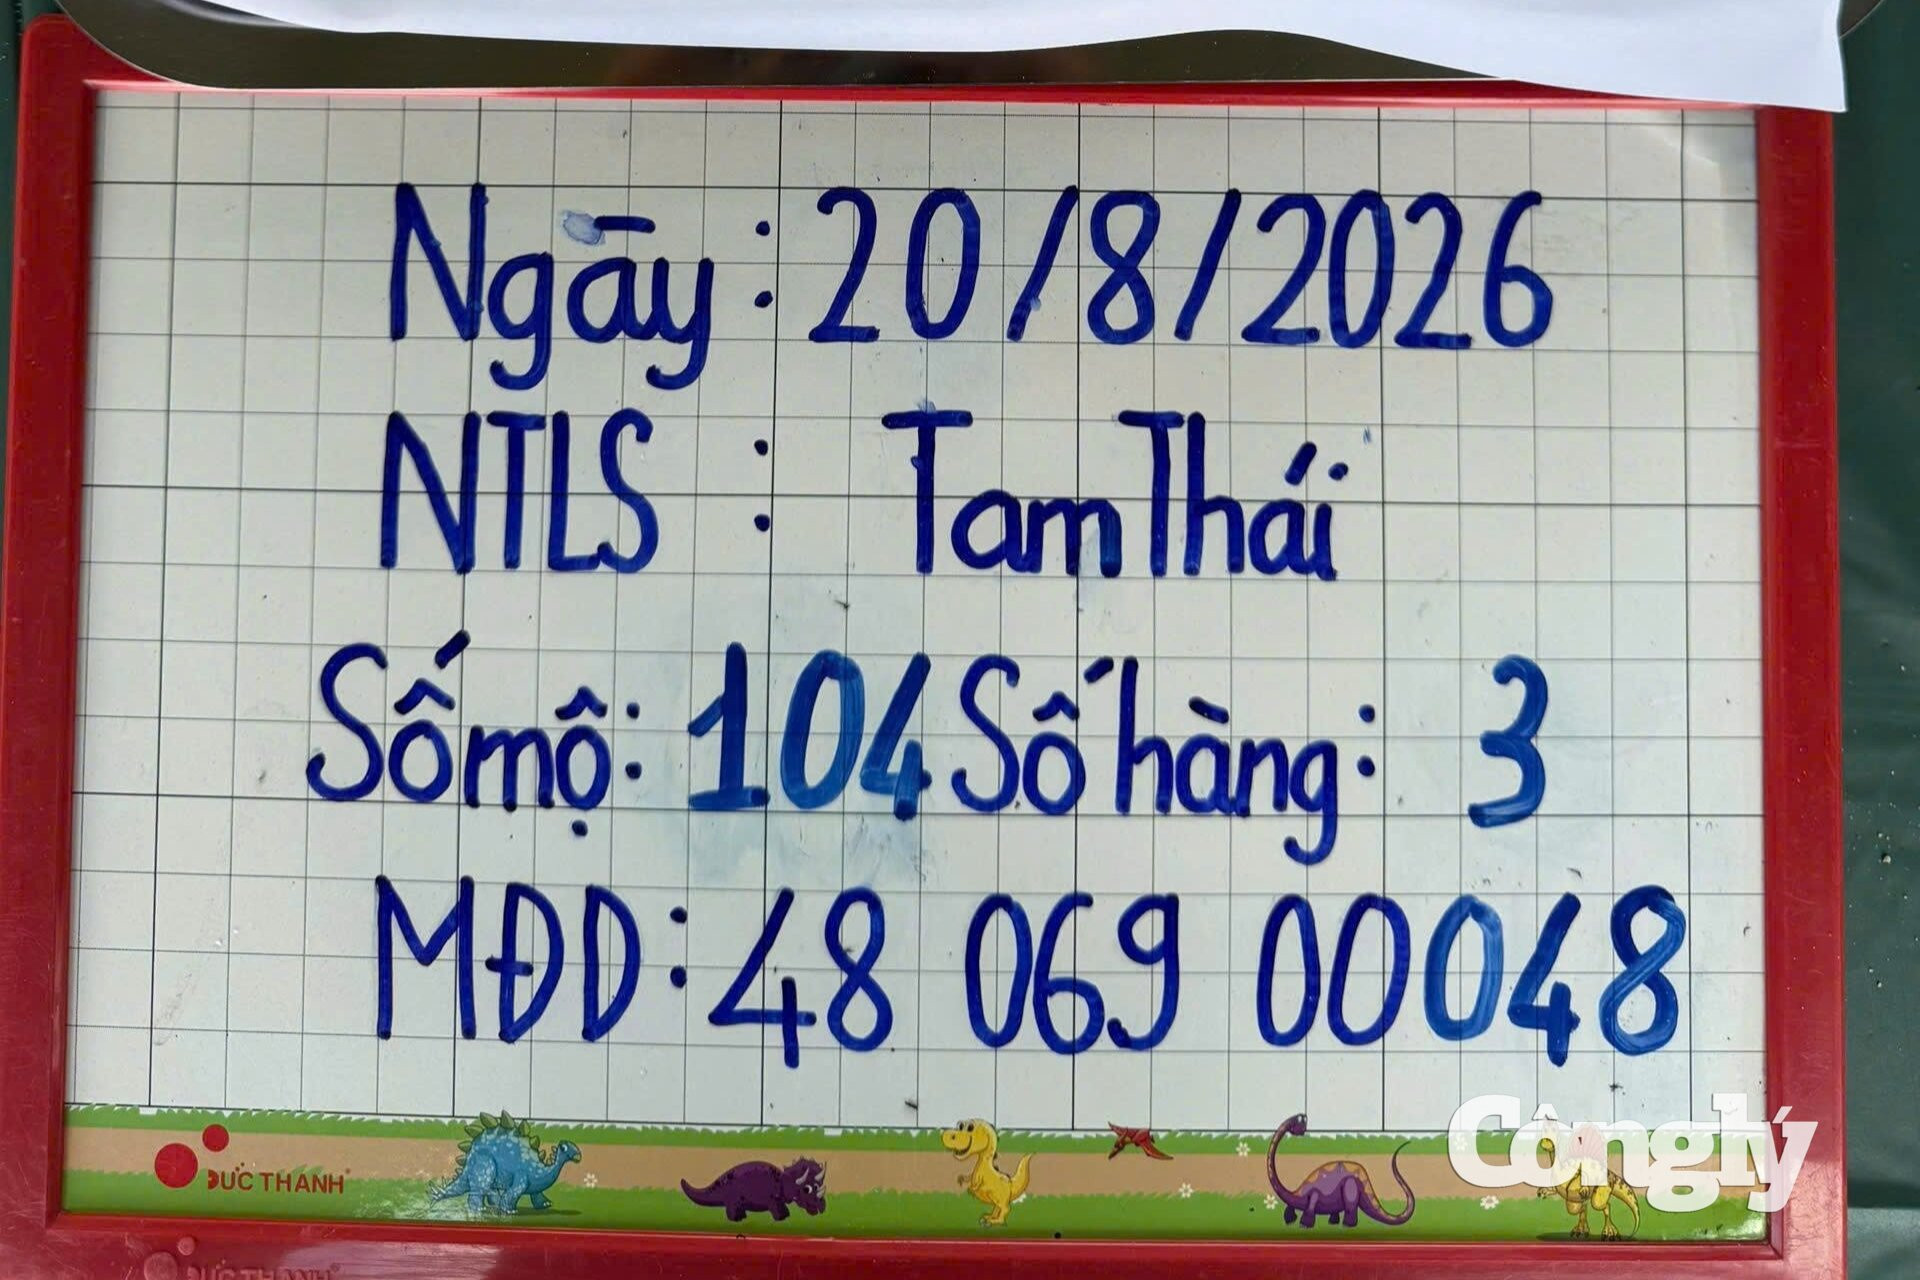 Ngày : 20/8/2026
NTLS : Tam Thái
Số mộ: 104 Số hàng: 3
MĐD: 48 069 00048
ĐỨC THÀNH
Cônglý
ĐỨC THÀNH